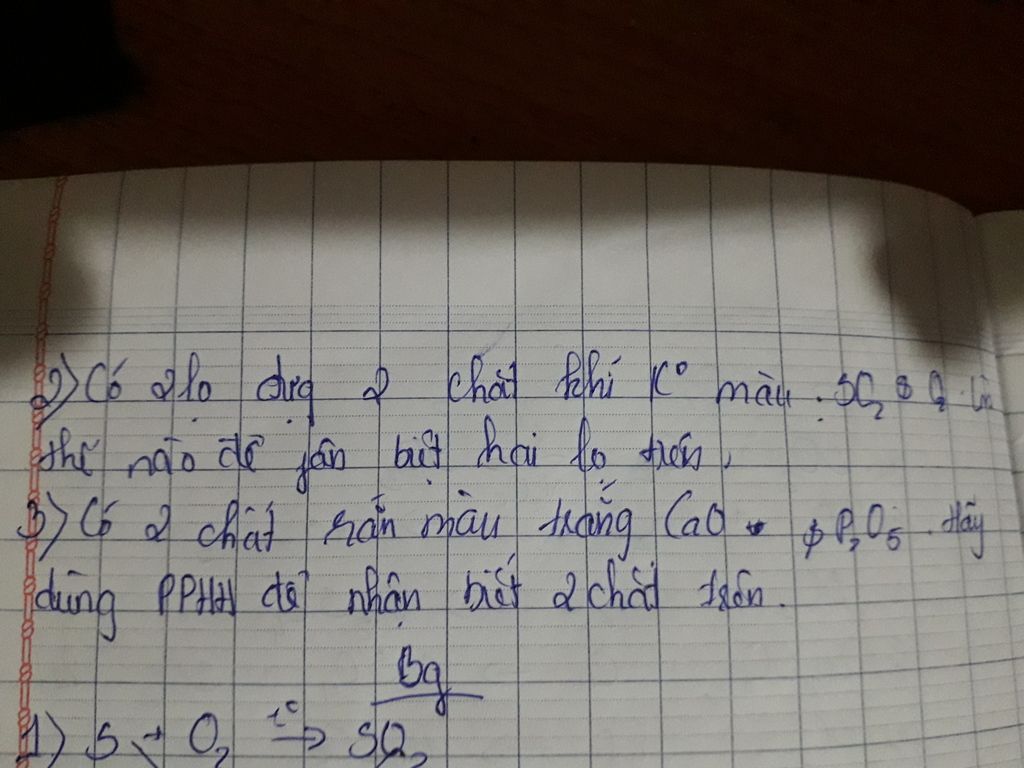 2) Có 2 lọ đựg 2 chất khí K° màu. SO₂ & O₂. Làm
thế nào để fân biệt hai lọ trên.
3) Có 2 chất rắn màu trắng CaO & P₂O₅. Hãy
dùng PPHH để nhận biết 2 chất trên.
Bg
1) S + O₂ t°→ SO₂